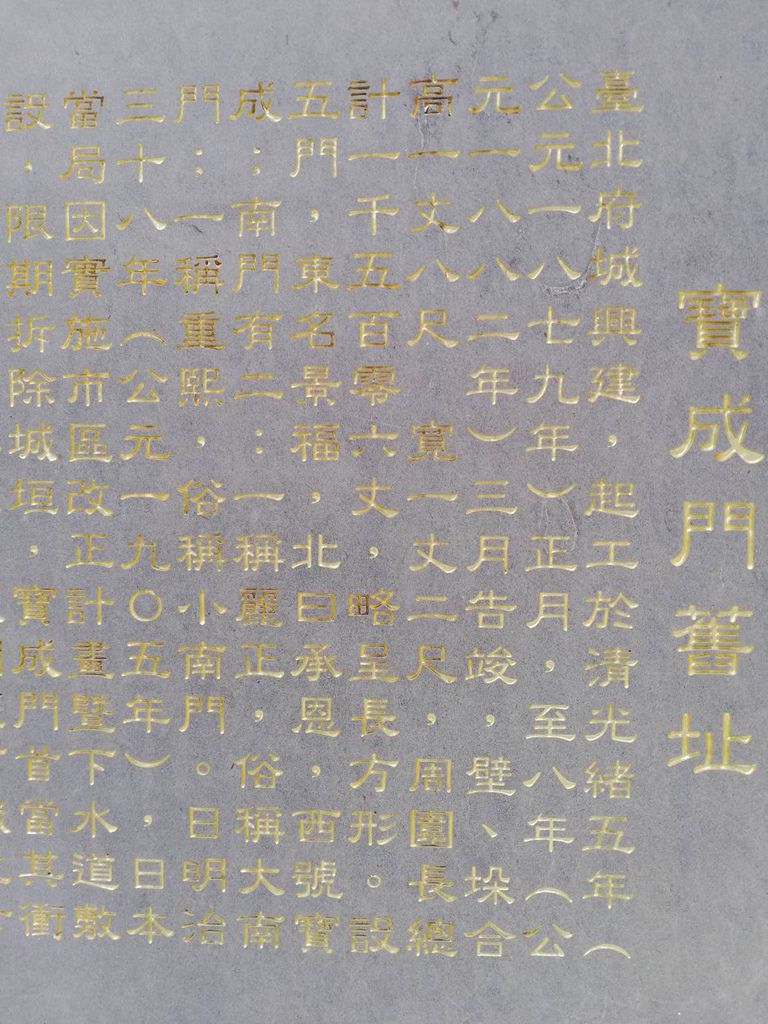 寶成門舊址
臺北府城興建，起工於清光緒五年（
公元一八七九年）正月，至八年（公
元一八八二年）三月告竣，壁、垛合
高一丈八尺　寬一丈二尺，周圍長總
計一千五百零六丈，略呈長方形。設
五門，東名景福，北曰承恩，西號寶
成；南門有二：一稱麗正，俗稱大南
門；一稱重熙，俗稱小南門。日明治
三十八年（公元一九〇五年），日本
當局因實施市區改正計畫暨下水道敷
設，限期拆除城垣，寶成門首當其衝